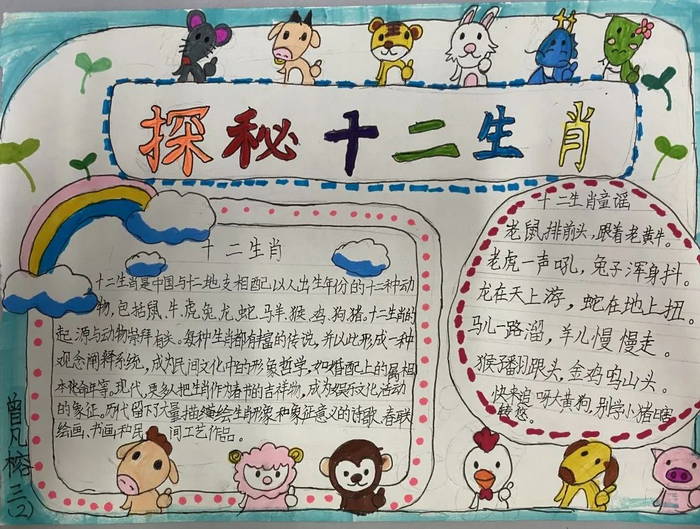 探秘十二生肖
十二生肖
十二生肖是中国与十二地支相配以人出生年份的十二种动
物,包括鼠、牛、虎、兔、龙、蛇、马、羊、猴、鸡、狗、猪。十二生肖的
起源与动物崇拜有关。每种生肖都有丰富的传说,并以此形成一种
观念阐释系统,成为民间文化中的形象哲学,如婚配上的属相
本化命年等。现代,更多人把生肖作为春节的吉祥物,成为娱乐文化活动
的象征。历代留下大量描绘生肖形象和象征意义的诗歌、春联
绘画、书画和民间工艺作品。
十二生肖童谣
老鼠排前头,跟着老黄牛。
老虎一声吼,兔子浑身抖。
龙在天上游,蛇在地上扭。
马儿一路溜,羊儿慢慢走。
猴子翻跟头,金鸡鸣山头。
快来追呀大黄狗,别学小猪
转悠。
曾凡榕三(2)